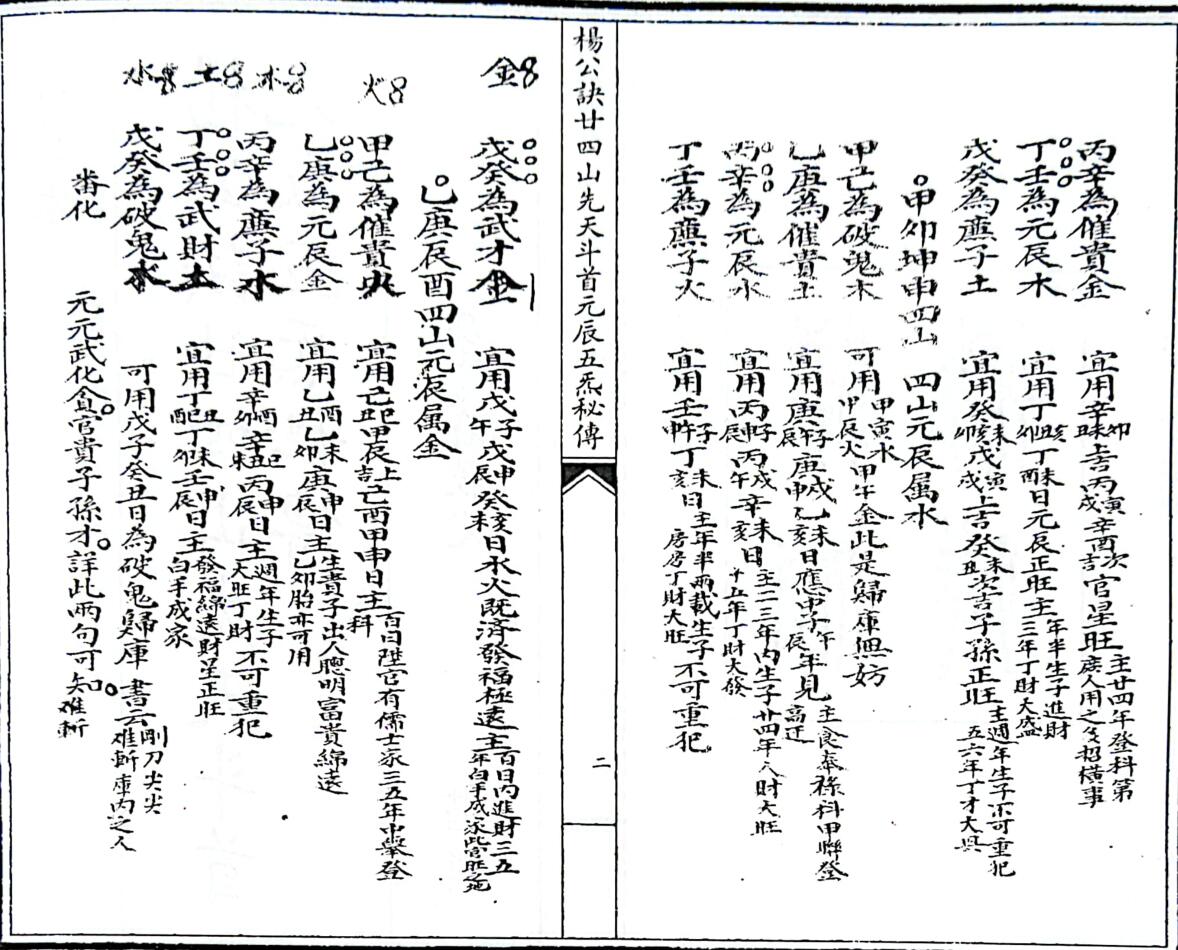 丙辛為催貴金 宜用辛卯未丑上吉丙寅戌辛酉次吉官星旺主廿四年登科第庶人用之反招橫事
丁壬為元辰木 宜用丁亥丑卯丁未酉日元辰正旺主年半生子進財三年丁財大盛
戊癸為廉子土 宜用癸未亥卯戊寅戌上吉癸未丑次吉子孫正旺主週年生子不可重犯五六年丁才大興
甲卯坤申四山 四山元辰属水
甲己為破鬼木 可用甲寅水甲辰火甲午金此是歸庫無妨
乙庚為催貴土 宜用庚子午辰庚戌申乙未亥日應甲子午辰年見主食奉祿科甲聯登高迁
丙辛為元辰水 宜用丙子申辰丙戌午辛未亥日主二三年内生子廿四年人財大旺十五年丁財大發
丁壬為廉子火 宜用壬子午申丁未亥日主年半兩載生子不可重犯房房丁財大旺
楊公訣廿四山先天斗首元辰五炁秘傳
二
金8
戊癸為武才金 宜用戊子午戊申辰癸亥未日水火既済發福極遠主百日内進財三五年白手成家此宫旺之地
乙庚辰酉四山元辰属金
火8
甲己為催貴火 宜用己巳丑甲辰上吉己酉甲申日主百日陞官有儒士家三五年中舉登科
乙庚為元辰金 宜用乙酉丑乙未卯庚申辰日主生貴子出人聰明富貴綿遠乙卯胎亦可用
木8
丙辛為廉子水 宜用辛酉卯辛巳丑未丙申辰日主週年生子不可重犯大旺丁財
土8
丁壬為武財土 宜用丁丑巳酉丁未卯壬申辰日主發福綿遠財星正旺白手成家
水8
戊癸為破鬼水 可用戊子癸丑日為破鬼歸庫 書云剛刀尖尖难斬庫内之人
番化 元元武化貪官貴子孫才詳此兩句可知难斬